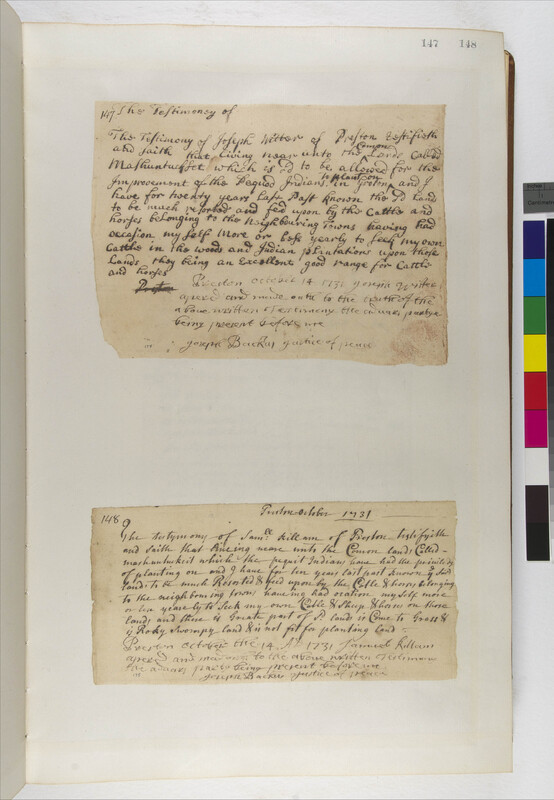 147 148
147 The Testimony of
The Testimony of Joseph Witter of Preston Testifieth
and saith that Living near unto the Comon Lands Called
Mashuntuxett which is sd to be allowed for the
Improvement of the Pequod Indians to plant on in groton and I
have for twenty years Last Past known the sd Land
to be much resorted and fed upon by the Cattle and
horses belonging to the Neighbouring towns having had
occasion my self More or Less yearly to seek my own
Cattle in the woods and Indian plantations upon those
Lands they being an Excellent good range for Cattle
and horses
Preston october 14 1731 Joseph Witter
apered and made oath to the truth of the
above written Testimony the adverse partye
being present before me
Joseph Backus Justice of peace
148
Preston october 1731
The testymony of Samll killamm of Preston testifyeth
and saith that Liveing neare unto the Comon land Called
mashantuksit which the pequit Indians have had the priviledg
of planting on and I have for ten years last past known sd
land to be much Resorted & feed upon by the Catle & horses belonging
to the neighbouring towns haveing had ocation myself more
or les yearly to Seek my own Catle & Sheep & horses on those
land and there is Greate part of sd land is Come to Grass &
Rocky Swompy land & is not fit for planting land
Preston october the 14 AD 1731 Samuel killam
apered and made oath to the above written Testimoni
the advers partey being present before me
Joseph Backus Justice of peace